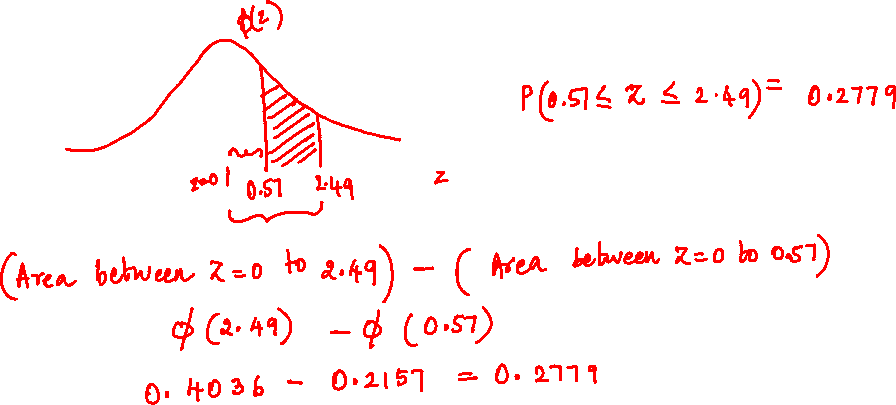 ϕ(z)
P(0.57 ≤ z ≤ 2.49) = 0.2779
z=0 0.57 2.49 z
(Area between z=0 to 2.49) - (Area between z=0 to 0.57)
ϕ(2.49) - ϕ(0.57)
0.4036 - 0.2157 = 0.2779